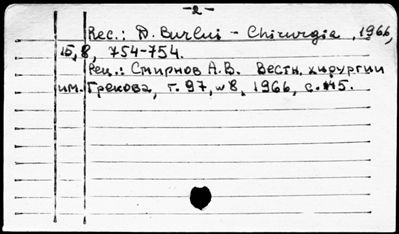 -2-
Rec.: D. Burlui - Chirurgia, 1966,
15, 8, 754-754.
Рец.: Смирнов А.В. Вестн. хирургии
им. Грекова, т. 97, №8, 1966, с. 145.